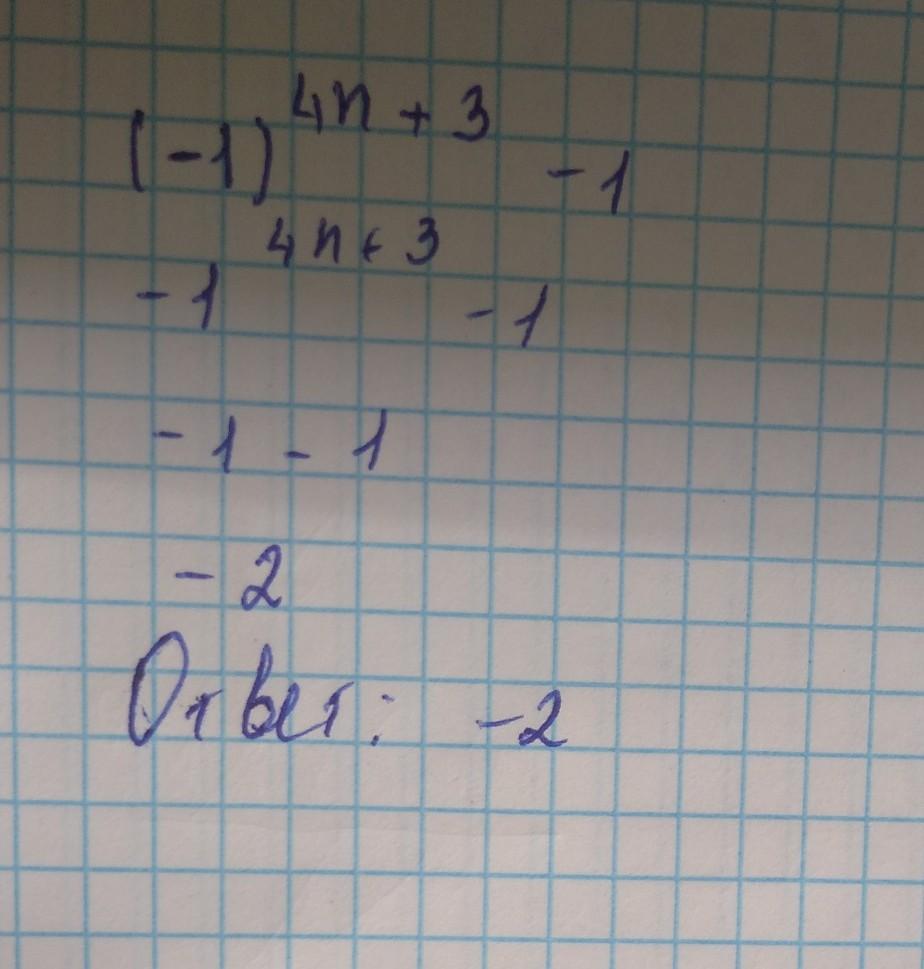 (-1)^{4n+3} -1
-1^{4n+3} -1
-1 - 1
-2
Ответ: -2